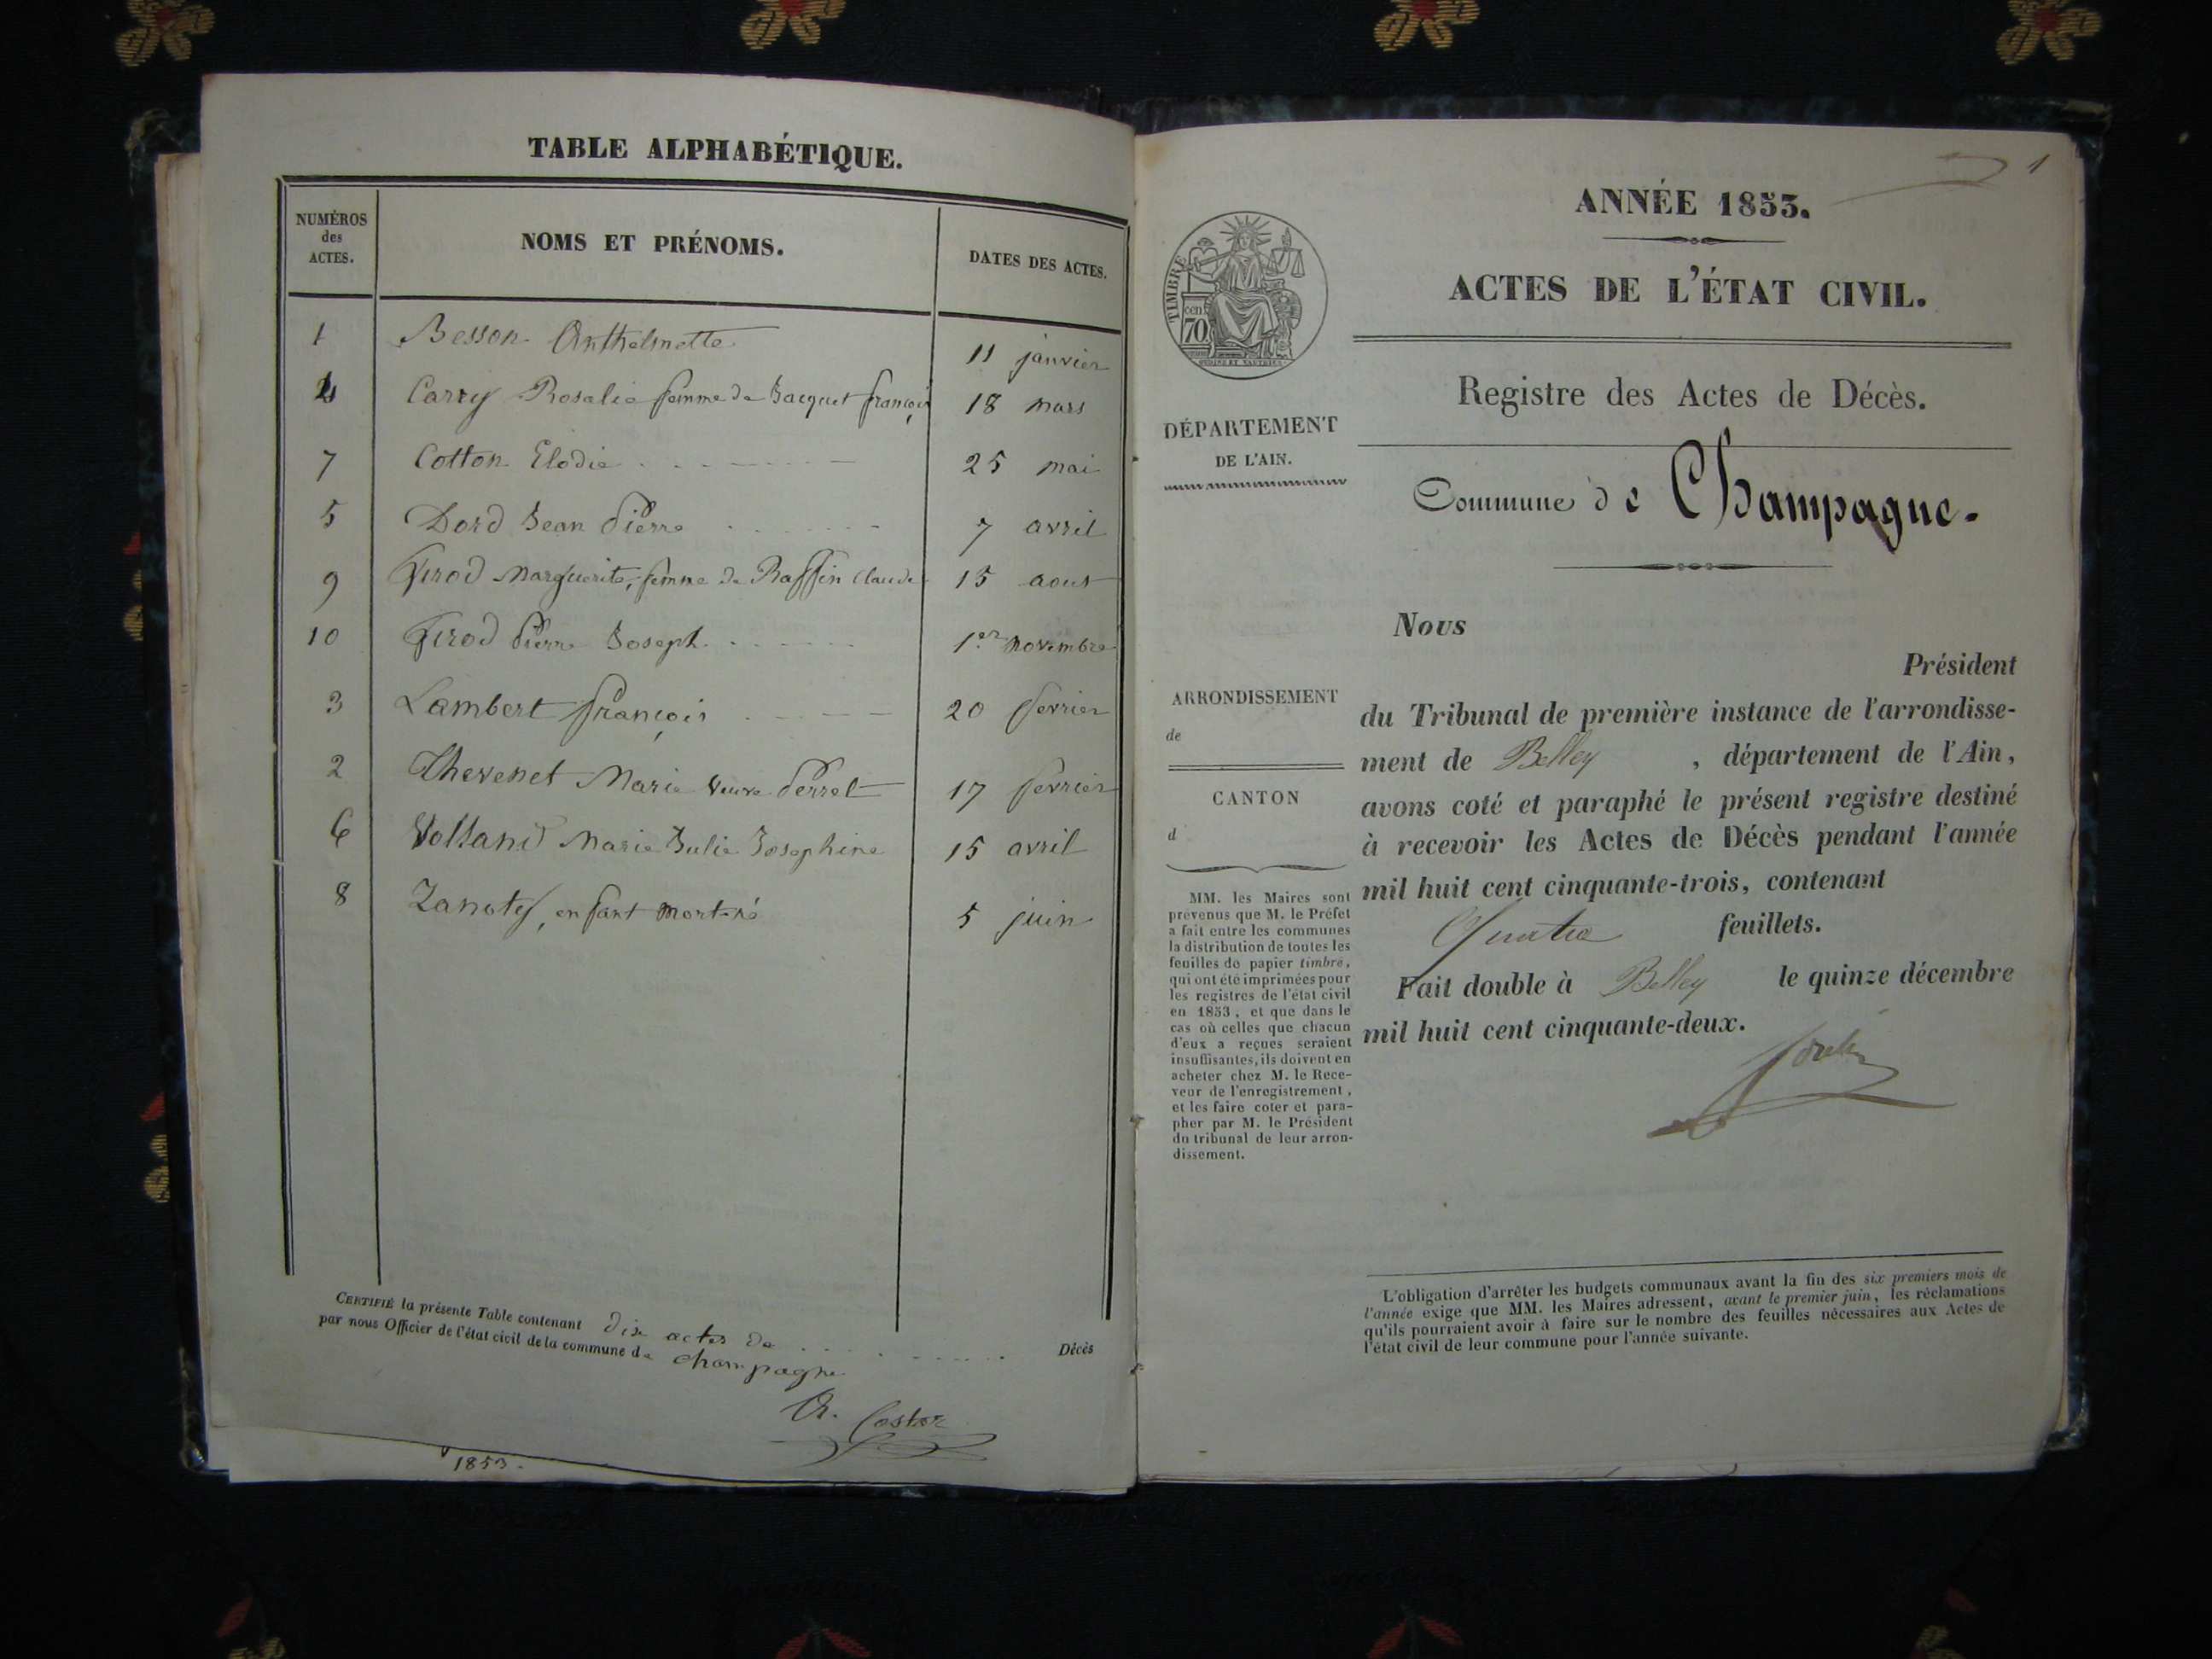 TABLE ALPHABÉTIQUE.
NUMÉROS
des
ACTES.
NOMS ET PRÉNOMS.
DATES DES ACTES.
1 Besson Anthelmette 11 janvier
4 Carry Rosalie femme de Jacquet françois 18 mars
7 Cotton Elodie 25 mai
5 Dord Jean Pierre 7 avril
9 Girod Marguerite, femme de Raffin Claude 15 aout
10 Girod Pierre Joseph 1er novembre
3 Lambert françois 20 fevrier
2 Thevenet Marie veuve Perret 17 fevrier
6 Marie Julie Josephine 15 avril
8 Zanoty, enfant mort-né 5 juin
CERTIFIÉ la présente Table contenant dix actes de Décès
par nous Officier de l'état civil de la commune de champagne
Castor
1853.
1
ANNÉE 1853.
ACTES DE L'ÉTAT CIVIL.
TIMBRE
70 cen.
Registre des Actes de Décès.
DÉPARTEMENT
DE L'AIN.
Commune de Champagne.
Nous
Président
du Tribunal de première instance de l'arrondisse-
ment de Belley , département de l'Ain,
avons coté et paraphé le présent registre destiné
à recevoir les Actes de Décès pendant l'année
mil huit cent cinquante-trois, contenant
Quatre feuillets.
Fait double à Belley le quinze décembre
mil huit cent cinquante-deux.
ARRONDISSEMENT
de
CANTON
d
MM. les Maires sont
prévenus que M. le Préfet
a fait entre les communes
la distribution de toutes les
feuilles de papier timbré,
qui ont été imprimées pour
les registres de l'état civil
en 1853, et que dans le
cas où celles que chacun
d'eux a reçues seraient
insuffisantes, ils doivent en
acheter chez M. le Rece-
veur de l'enregistrement,
et les faire coter et para-
pher par M. le Président
du tribunal de leur arron-
dissement.
L'obligation d'arrêter les budgets communaux avant la fin des six premiers mois de
l'année exige que MM. les Maires adressent, avant le premier juin, les réclamations
qu'ils pourraient avoir à faire sur le nombre des feuilles nécessaires aux Actes de
l'état civil de leur commune pour l'année suivante.